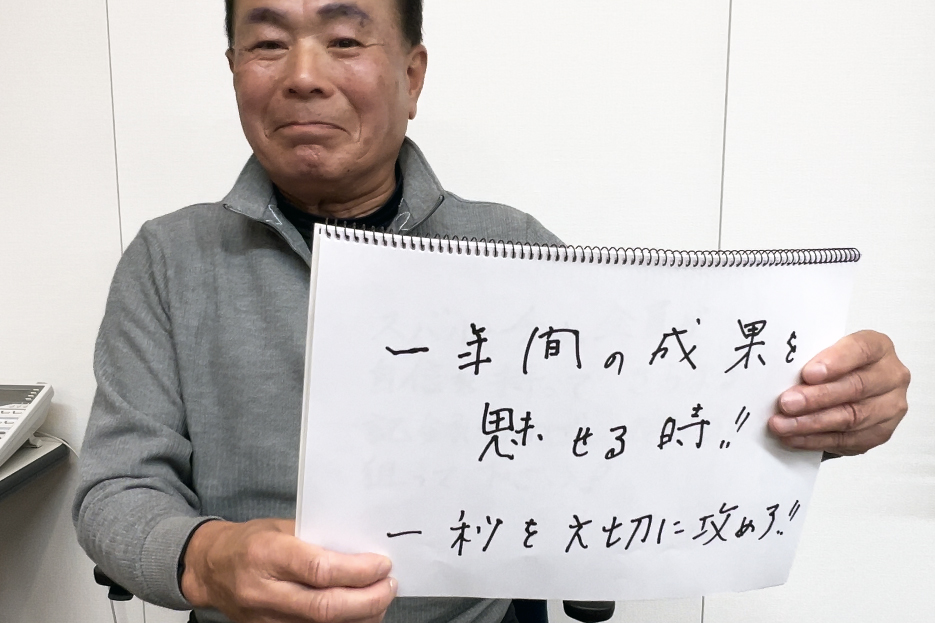 一年間の成果を
魅せる時!!
一秒を大切に攻めろ!!